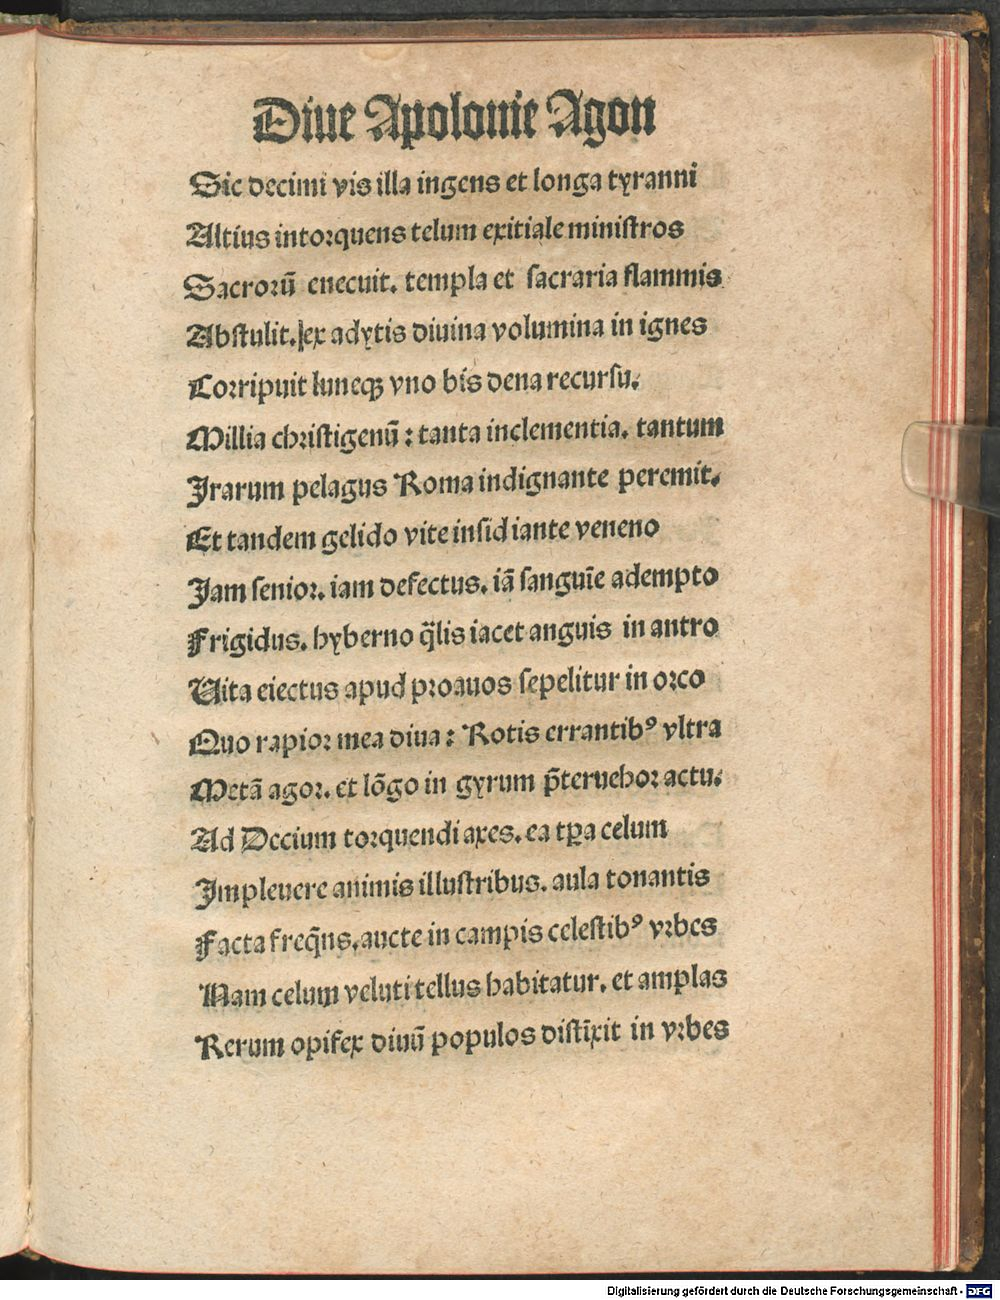 Diue Apolonie Agon
Sic decimi vis illa ingens et longa tyranni
Altius intorquens telum exitiale ministros
Sacrorū enecuit. templa et sacraria flammis
Abstulit. ex adytis diuina volumina in ignes
Corripuit luneqꝫ vno bis dena recursu.
Millia christigenū : tanta inclementia. tantum
Irarum pelagus Roma indignante peremit.
Et tandem gelido vite insidiante veneno
Iam senior. iam defectus. iā sanguīe adempto
Frigidus. hyberno q̄lis iacet anguis in antro
Uita eiectus apud proauos sepelitur in orco
Quo rapior mea diua : Rotis errantibꝰ vltra
Metā agor. et lōgo in gyrum p̄teruehor actu.
Ad Decium torquendi axes. ea tꝑa celum
Impleuere animis illustribus. aula tonantis
Facta freq̄ns. aucte in campis celestibꝰ vrbes
Nam celum veluti tellus habitatur. et amplas
Rerum opifex diuū populos distīxit in vrbes
Digitalisierung gefördert durch die Deutsche Forschungsgemeinschaft - DFG